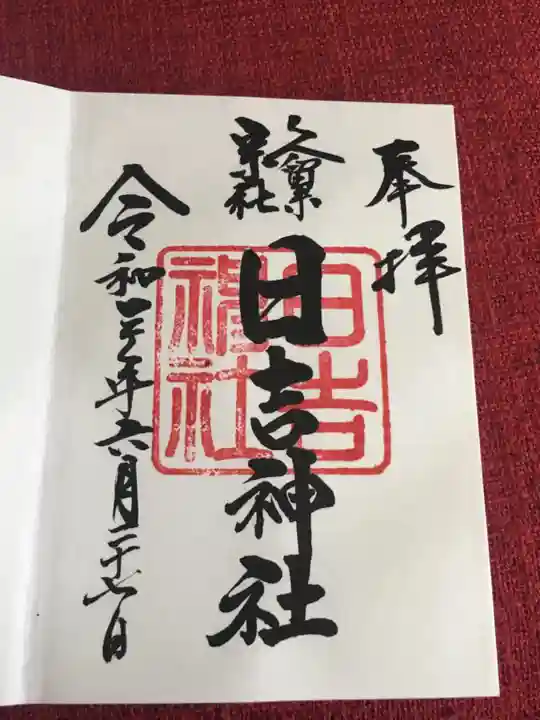 奉拝
久留米
宗社
日吉神社
令和三年六月二十七日
日吉
神社